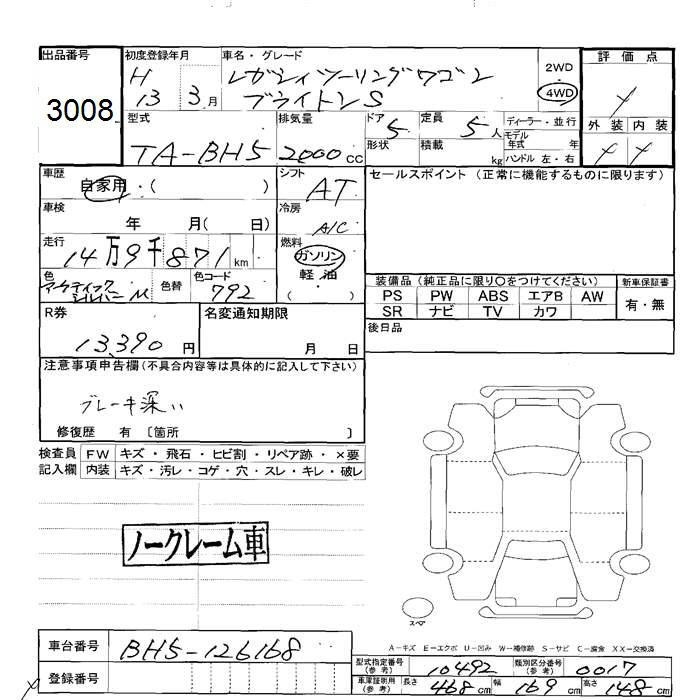 出品番号
3008
初度登録年月
H
13 3月
車名・グレード
レガシィツーリングワゴン
ブライトンS
2WD
・
4WD
評価点
外装 内装
型式
TA-BH5
排気量
2000cc
ドア
5
形状
定員
5人
積載
kg
ディーラー・並行
モデル
年式 年
ハンドル 左・右
車歴
自家用・( )
シフト
AT
セールスポイント (正常に機能するものに限ります)
車検
年 月( 日)
冷房
A/C
走行
14万9千871km
燃料
ガソリン
軽油
( )
色
アークティック
シルバーM
色替
色コード
792
装備品 (純正品に限り〇をつけてください)
PS PW ABS エアB AW
SR ナビ TV カワ
新車保証書
有・無
R券
13,390 円
名変通知期限
月 日
後日品
注意事項申告欄(不具合内容等は具体的に記入して下さい)
ブレーキ深い
修復歴 有 〔箇所 〕
検査員
記入欄
FW キズ・飛石・ヒビ割・リペア跡・×要
内装 キズ・汚レ・コゲ・穴・スレ・キレ・破レ
ノークレーム車
スペア
A-キズ E-エクボ U-凹み W-補修跡 S-サビ C-腐食 XX-交換済
車台番号
BH5-126168
登録番号
型式指定番号
(参考)
10492
類別区分番号
(参考)
0017
車庫証明用
(参考)
長さ 468cm 幅 169cm 高さ 148cm